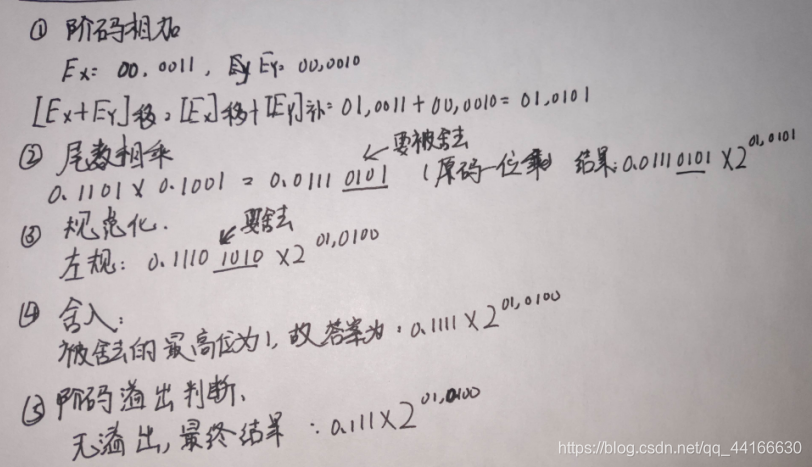 ① 阶码相加
Ex= 00.0011, Ey Ey= 00,0010
[Ex+Ey]移=[Ex]移+[Ey]补=01,0011+00,0010=01,0101
② 尾数相乘
0.1101×0.1001=0.0111 0101 ←要被舍去 (原码一位乘) 结果:0.0111 0101 ×2^01,0101
③ 规范化.
左规: 0.1110 1010 ×2^01,0100 ↙要舍去
④ 舍入:
被舍去的最高位为1,故答案为:0.1111×2^01,0100
⑤ 阶码溢出判断、
无溢出,最终结果:0.111×2^01,0100
https://blog.csdn.net/qq_44166630